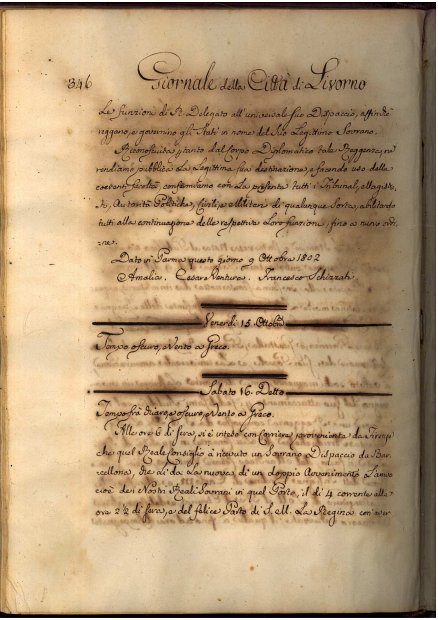 346 Giornale della Città di Livorno
Le funzioni di R. Delegato all'universale suo Dispaccio, affinchè
reggano, e governino gli Stati in nome del Suo Legittimo Sovrano.
Riconosciuta pertanto dal Corpo Diplomatico tale Reggenza,
rendiamo pubblica La Legittima sua destinazione, e facendo uso delle
facoltà confermiamo con La presente tutti i Tribunali, Magistra
ti, Autorità Politiche, Civili, e Militari di qualunque Sorta, abilitando
tutti alla continuazione delle respettive Loro funzioni, fino a nuov' ordi
ne.
Dato in Parma questo giorno 9 Ottobre 1802
Amalia. Cesare Ventura. Francesco Schizzati.
Venerdì 15. Ottobre
Tempo oscuro, e Vento a Greco.
Sabato 16. Detto
Tempo frà chiaro, e oscuro, e Vento a Greco.
Alle ore 6 di sera, si è inteso con Corriere proveniente da Firenze
che quel Reale Consiglio à ricevuto un Sovrano Dispaccio da Bar
cellona, che dà La nuova di un doppio Avvenimento L'uno
cioè dei Nostri Reali Sovrani in quel Porto, il dì 4 corrente alle
ore 2½ di sera, e del felice Parto di S. M. La Regina con aver